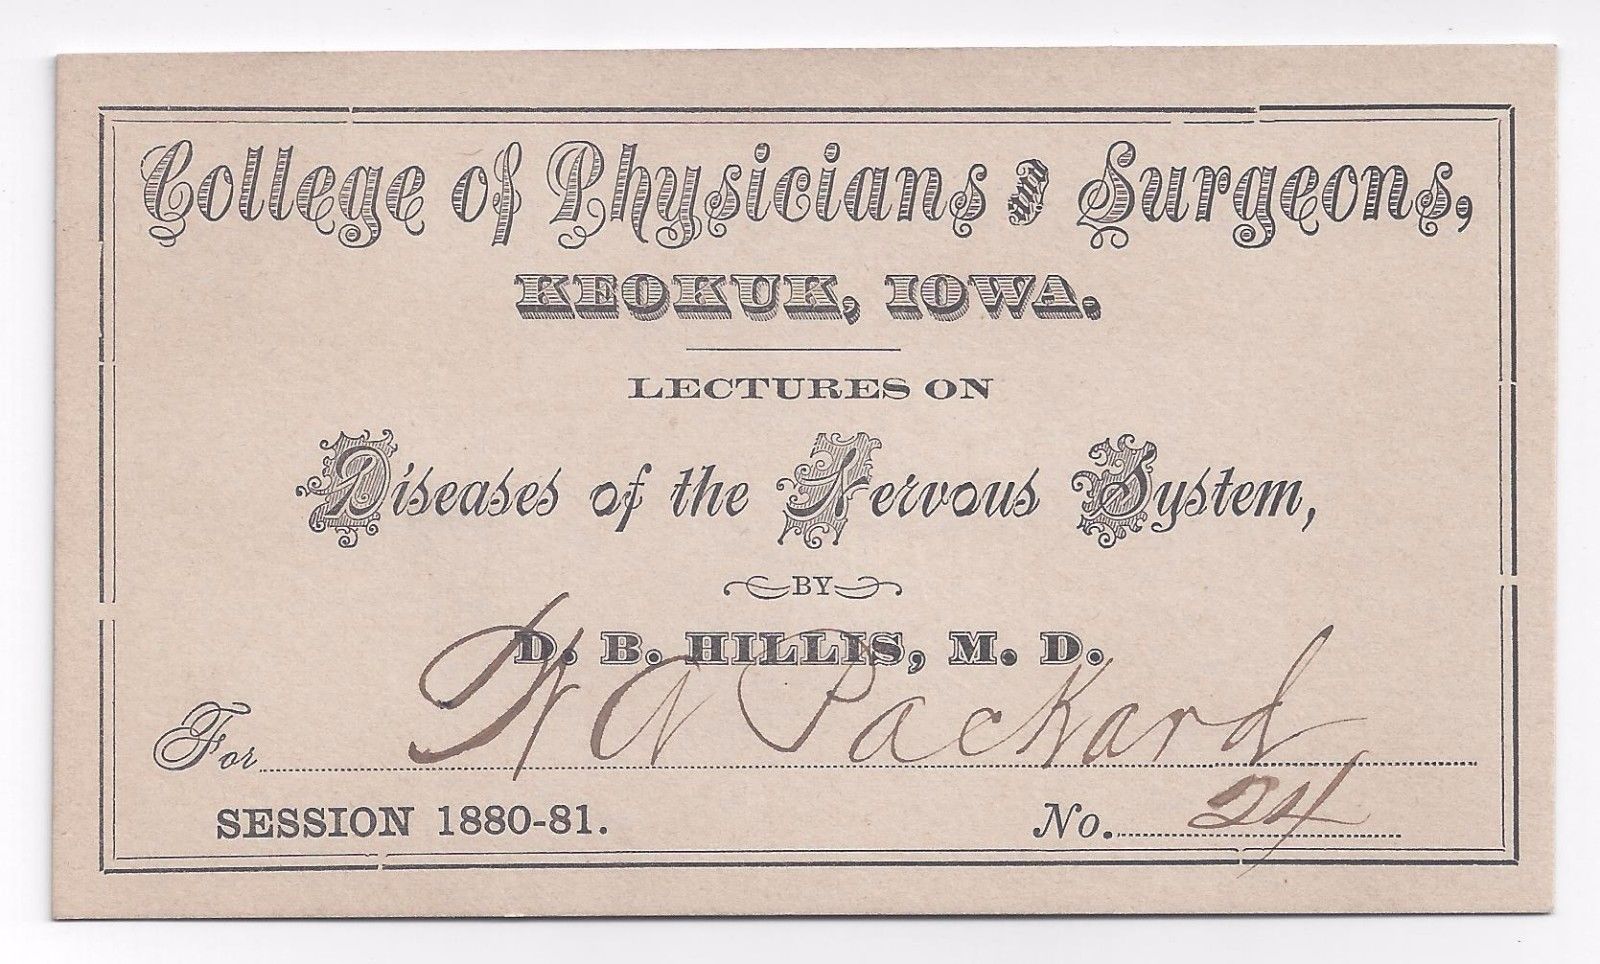 College of Physicians and Surgeons,
KEOKUK, IOWA.
LECTURES ON
Diseases of the Nervous System,
BY
D. B. HILLIS, M. D.
For Packard
SESSION 1880-81.
No. 24